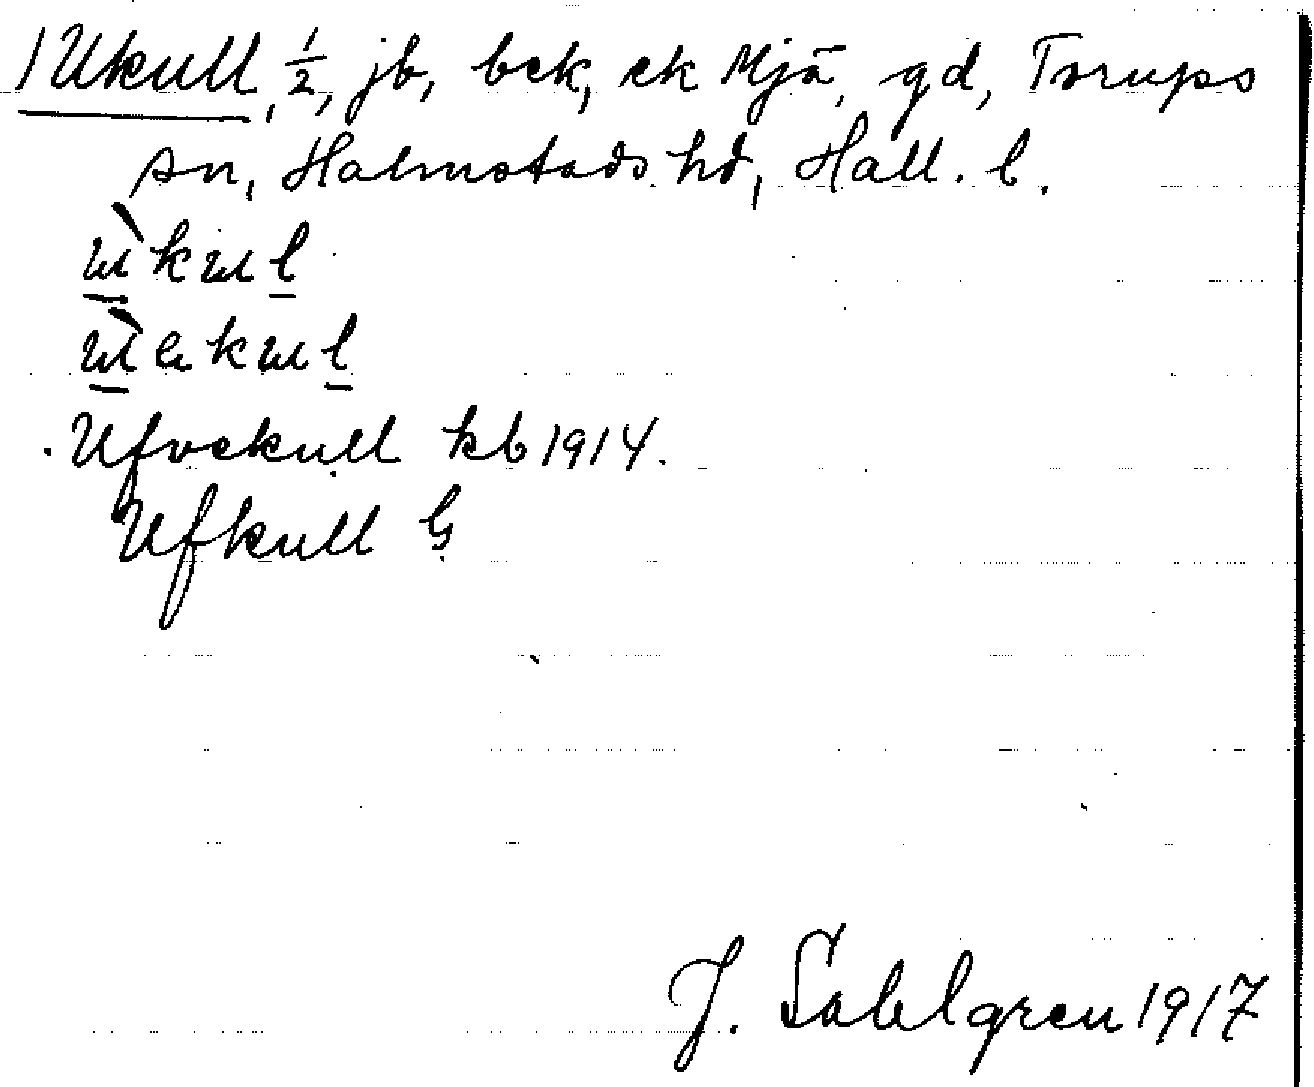 1 Ukull, ½, jb, bek, ek Mjä, gd, Torups
sn, Halmstads hd, Hall. l.
ùkul
ùekul
Ufvekull kb 1914.
Ufkull G
J. Sahlgren 1917